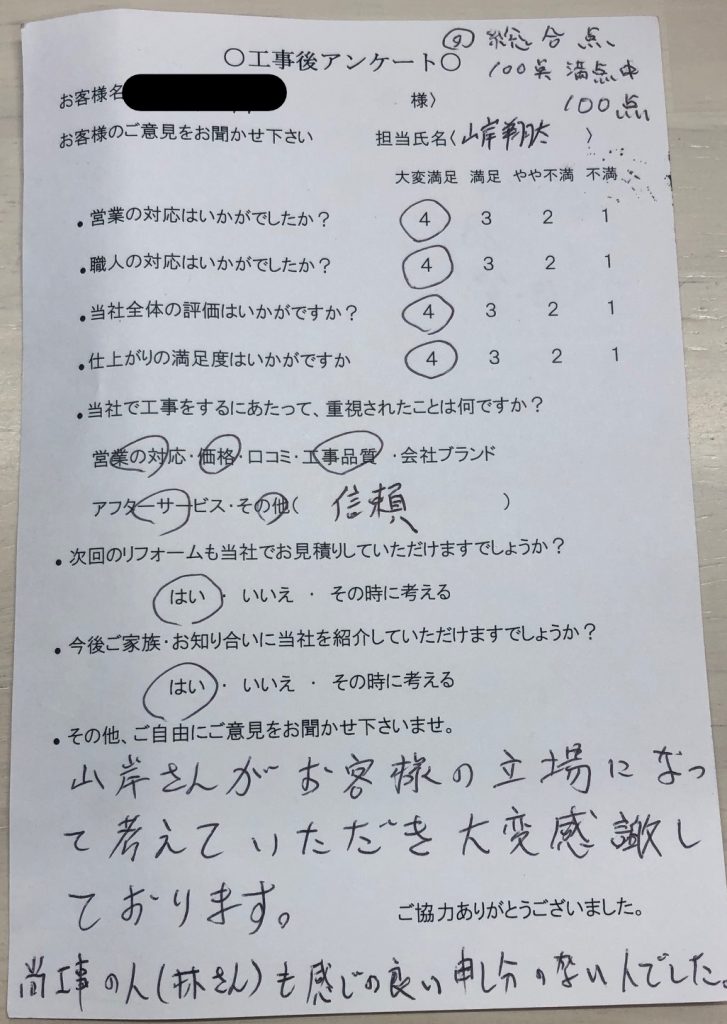 〇工事後アンケート〇
⑨ 総合点
100点満点中
100点
お客様名
様）
お客様のご意見をお聞かせ下さい
担当氏名(山岸翔太 )
大変満足 満足 やや不満 不満
・営業の対応はいかがでしたか？ 4 3 2 1
・職人の対応はいかがでしたか？ 4 3 2 1
・当社全体の評価はいかがですか？ 4 3 2 1
・仕上がりの満足度はいかがですか 4 3 2 1
・当社で工事をするにあたって、重視されたことは何ですか？
営業の対応・価格・口コミ・工事品質 ・会社ブランド
アフターサービス・その他( 信頼 )
・次回のリフォームも当社でお見積りしていただけますでしょうか？
はい ・ いいえ ・ その時に考える
・今後ご家族・お知り合いに当社を紹介していただけますでしょうか？
はい ・ いいえ ・ その時に考える
・その他、ご自由にご意見をお聞かせ下さいませ。
山岸さんがお客様の立場になっ
て考えていただき大変感謝し
ております。
ご協力ありがとうございました。
尚工事の人(林さん)も感じの良い申し分のない人でした。